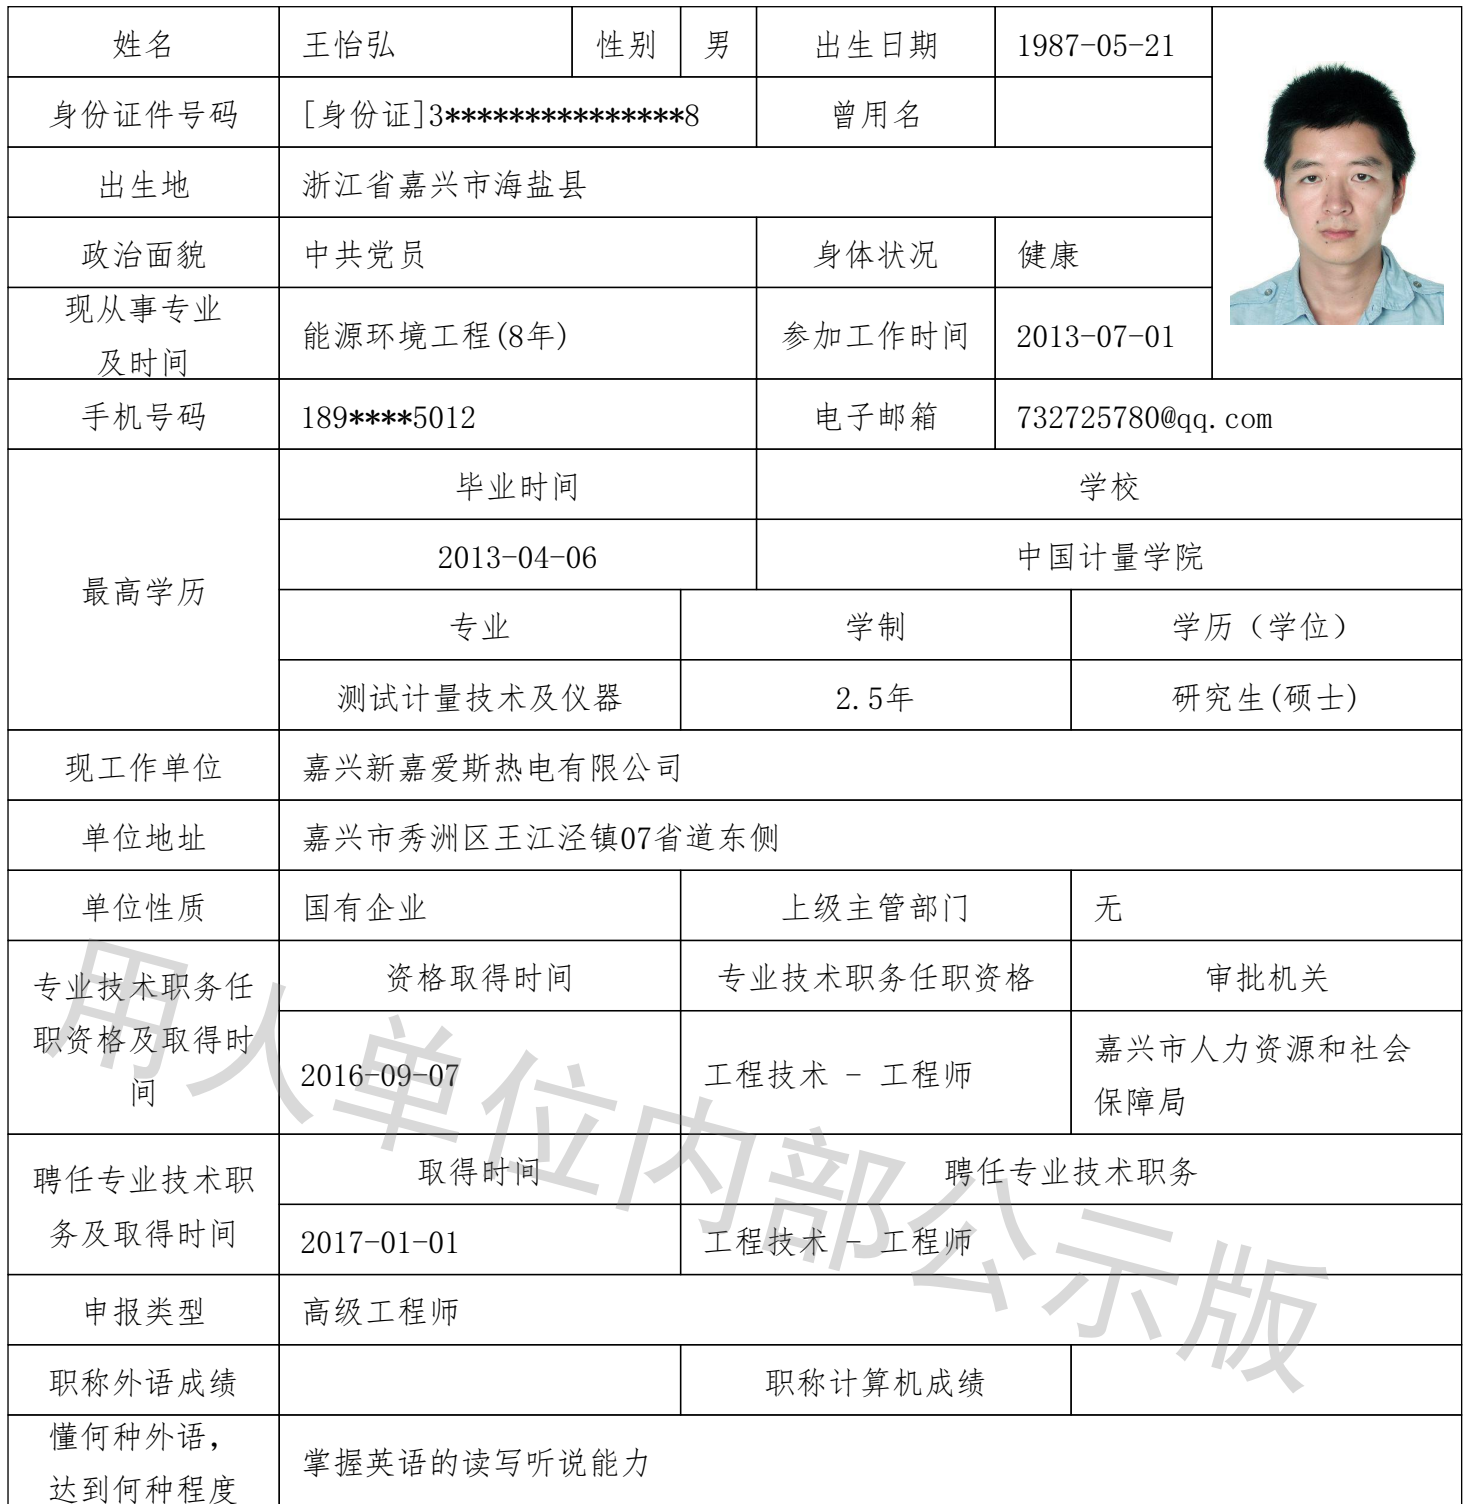 姓名 王怡弘 性别 男 出生日期 1987-05-21
身份证件号码 [身份证]3***************8 曾用名
出生地 浙江省嘉兴市海盐县
政治面貌 中共党员 身体状况 健康
现从事专业
及时间 能源环境工程(8年) 参加工作时间 2013-07-01
手机号码 189****5012 电子邮箱 732725780@qq.com
最高学历
毕业时间 学校
2013-04-06 中国计量学院
专业 学制 学历（学位）
测试计量技术及仪器 2.5年 研究生(硕士)
现工作单位 嘉兴新嘉爱斯热电有限公司
单位地址 嘉兴市秀洲区王江泾镇07省道东侧
单位性质 国有企业 上级主管部门 无
专业技术职务任
职资格及取得时
间
资格取得时间 专业技术职务任职资格 审批机关
2016-09-07 工程技术 - 工程师 嘉兴市人力资源和社会
保障局
聘任专业技术职
务及取得时间
取得时间 聘任专业技术职务
2017-01-01 工程技术 - 工程师
申报类型 高级工程师
职称外语成绩 职称计算机成绩
懂何种外语，
达到何种程度 掌握英语的读写听说能力
用人单位内部公示版